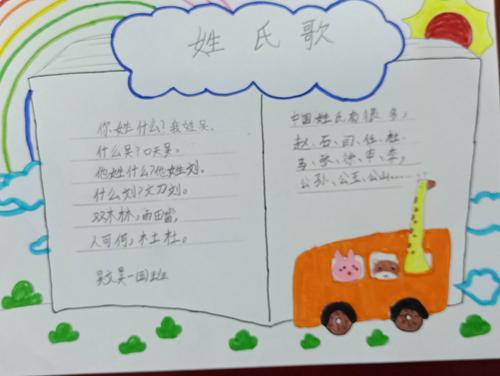 姓氏歌
你姓什么?我姓吴。
什么吴?口天吴。
他姓什么?他姓刘。
什么刘?文刀刘。
双木林,雨田雷,
人可何,木土杜。
班
中国姓氏有很多,
赵、石、任、杜、
张、徐、李,
公孙、公山……